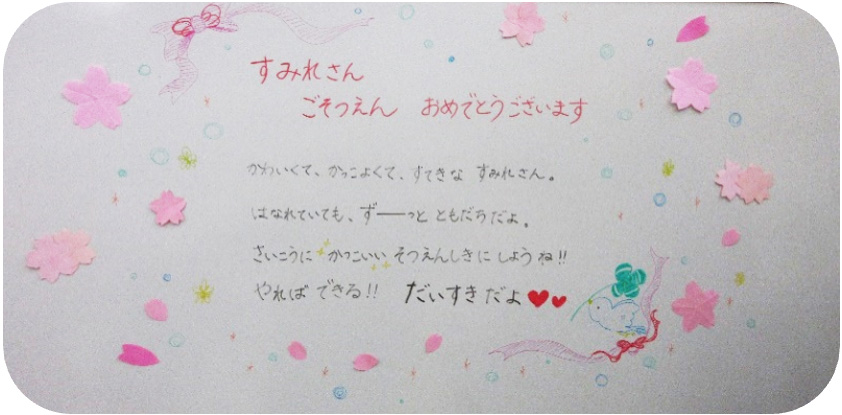 すみれさん
ごそつえん おめでとうございます
かわいくて、かっこよくて、すてきな すみれさん。
はなれていても、ずーーっと ともだちだよ。
さいこうに かっこいい そつえんしきに しようね!!
やれば できる!! だいすきだよ